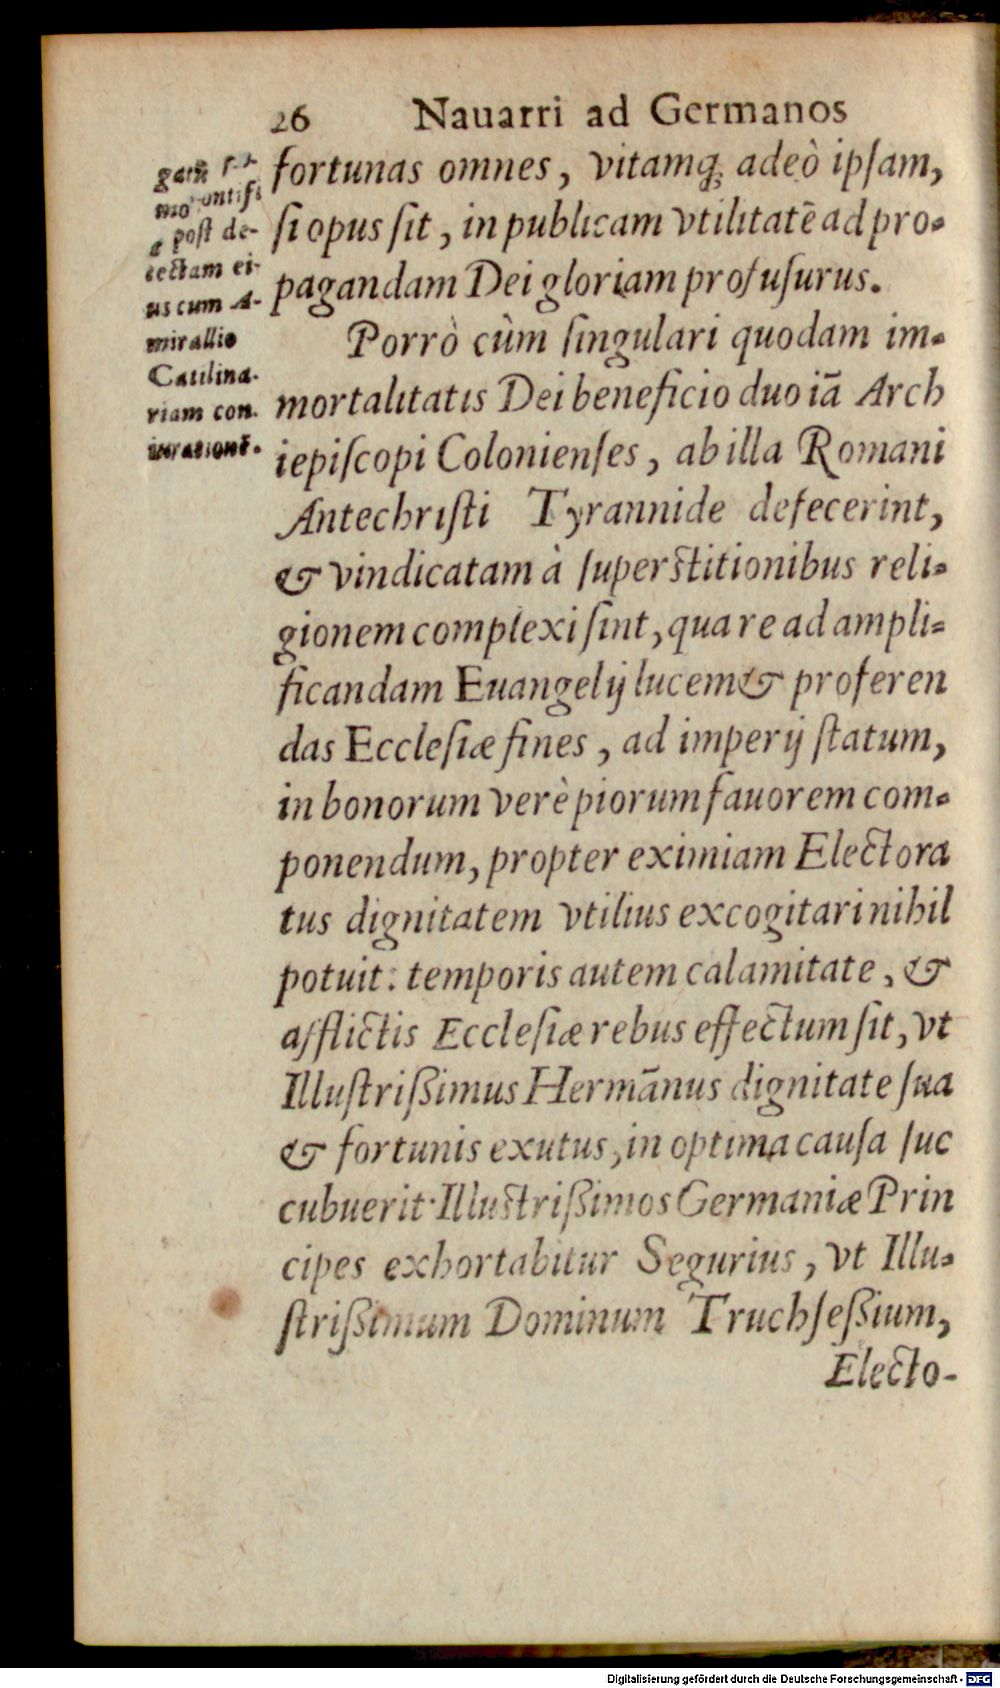 26 Nauarri ad Germanos
fortunas omnes, vitamq́; adeò ipſam,
ſi opus ſit, in publicam vtilitatē ad pro-
pagandam Dei gloriam profuſurus.
Porrò cùm ſingulari quodam im-
mortalitatis Dei beneficio duo iā Arch
iepiſcopi Colonienſes, ab illa Romani
Antechriſti Tyrannide defecerint,
& vindicatam à ſuperſtitionibus reli-
gionem complexi ſint, quare ad ampli-
ficandam Euangelij lucem & proferen
das Eccleſiæ fines, ad imperij ſtatum,
in bonorum verè piorum fauorem com-
ponendum, propter eximiam Electora
tus dignitatem vtilius excogitari nihil
potuit: temporis autem calamitate, &
afflictis Eccleſiæ rebus effectum ſit, vt
Illuſtrißimus Hermānus dignitate ſua
& fortunis exutus, in optima cauſa ſuc
cubuerit· Illuſtrißimos Germaniæ Prin
cipes exhortabitur Segurius, vt Illu-
ſtrißimum Dominum Truchſeßium,
Electo-
post de-
tectam ei-
us cum A-
mirallio
Catilina-
riam con-
iurationē.
Digitalisierung gefördert durch die Deutsche Forschungsgemeinschaft - DFG